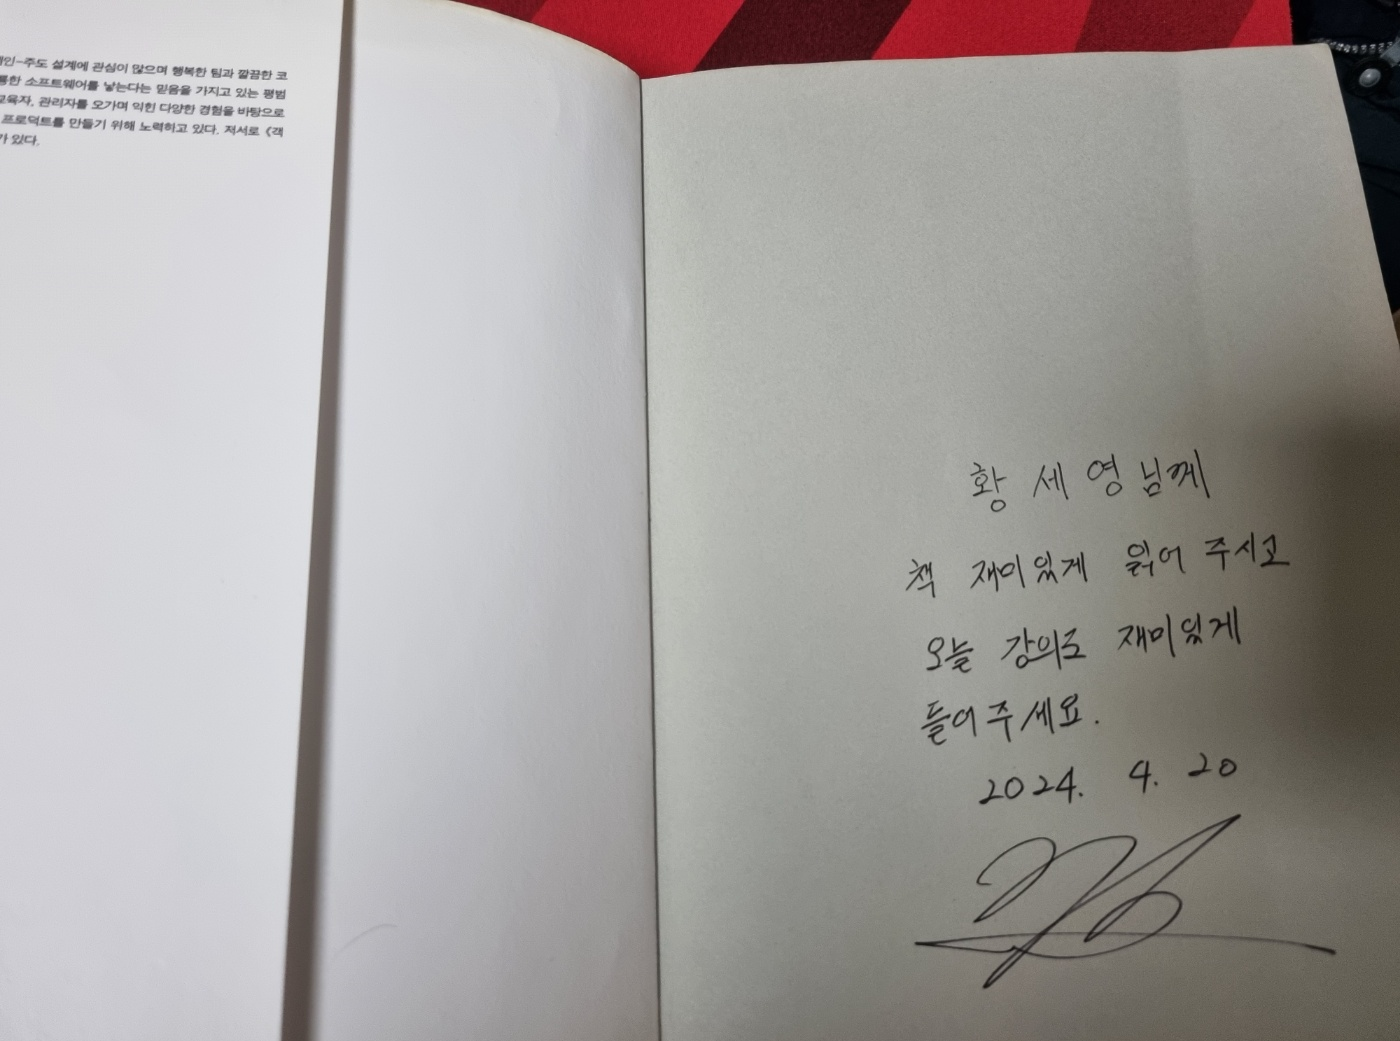 인-주도 설계에 관심이 많으며 행복한 팀과 깔끔한 코
한 소프트웨어를 낳는다는 믿음을 가지고 있는 평범
교육자, 관리자를 오가며 익힌 다양한 경험을 바탕으로
프로덕트를 만들기 위해 노력하고 있다. 저서로 《객
가 있다.
황세영님께
책 재미있게 읽어 주시고
오늘 강의도 재미있게
들어주세요.
2024. 4. 20